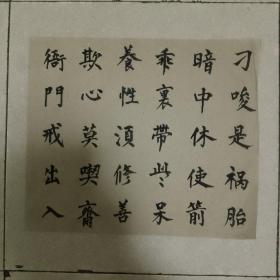 刁唆是祸胎
暗中休使箭
乖裏帶些呆
養性須修善
欺心莫喫齋
衙門戒出入